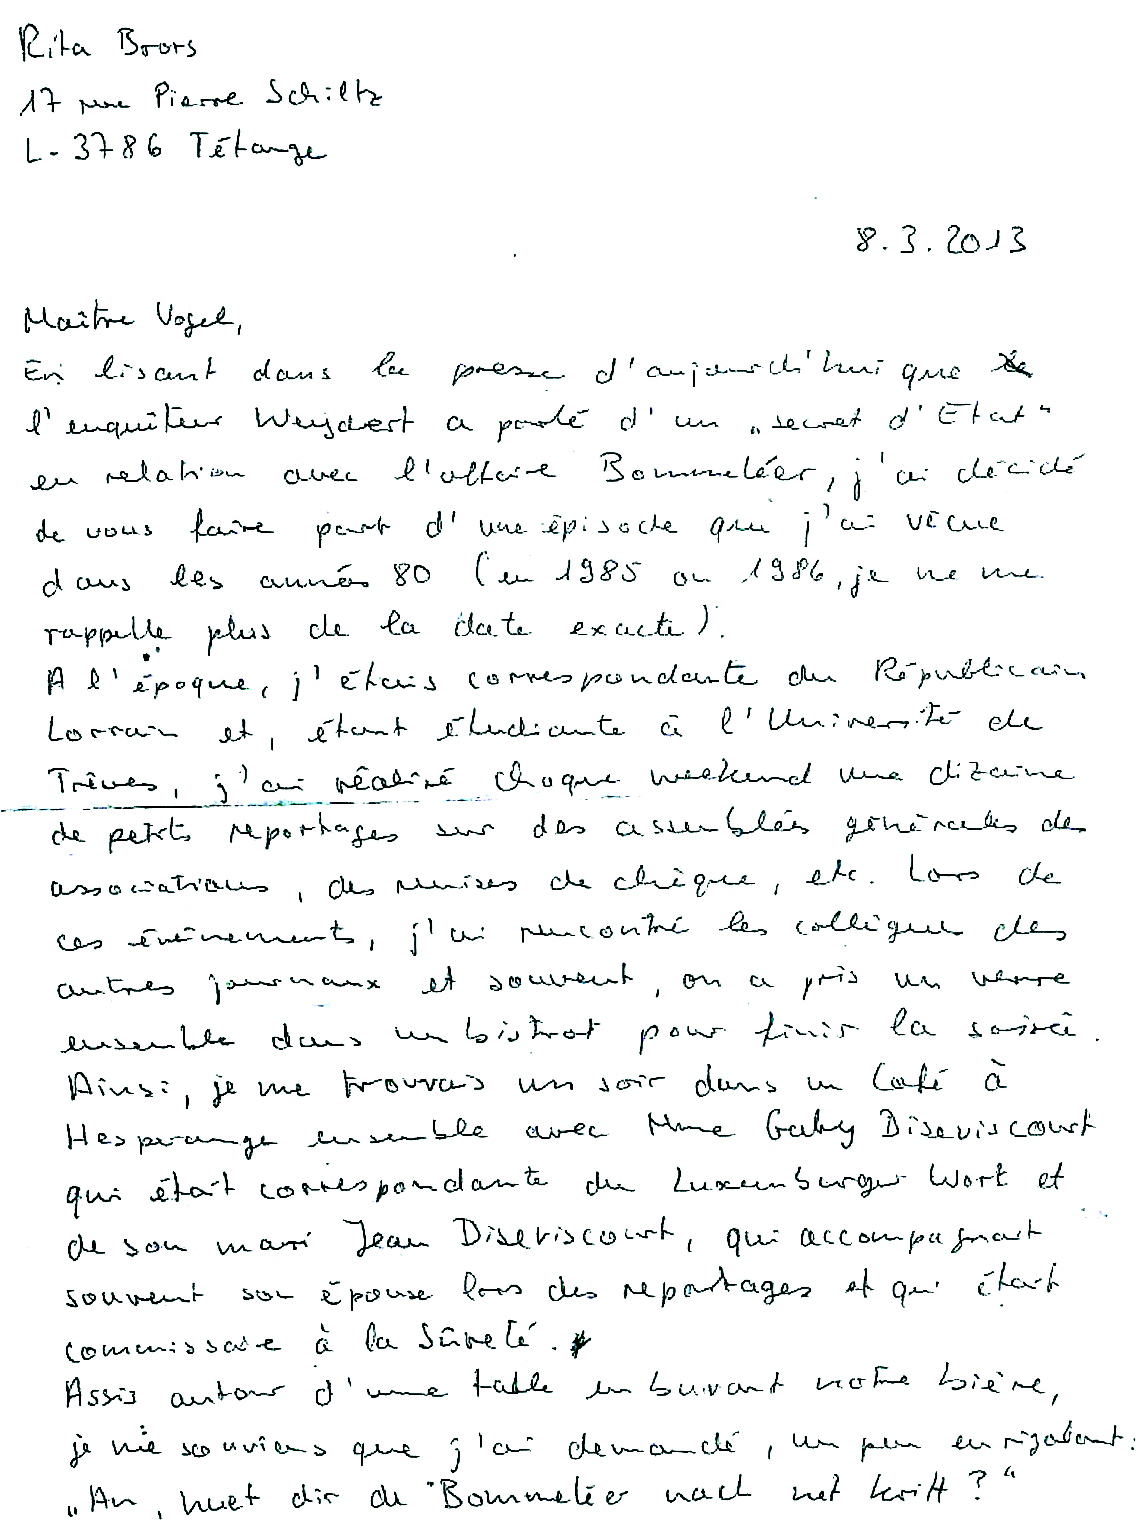 Rita Brors
17 rue Pierre Schiltz
L-3786 Tétange
8.3.2013
Maître Vogel,
En lisant dans la presse d'aujourd'hui que
l'enquêteur Weydert a parlé d'un „secret d'Etat"
en relation avec l'affaire Bommeléer, j'ai décidé
de vous faire part d'une épisode que j'ai vécue
dans les années 80 (en 1985 ou 1986, je ne me
rappelle plus de la date exacte).
A l'époque, j'étais correspondante du Républicain
Lorrain et, étant étudiante à l'Université de
Trèves, j'ai réalisé chaque weekend une dizaine
de petits reportages sur des assemblées générales des
associations, des remises de chèque, etc. Lors de
ces événements, j'ai rencontré les collègues des
autres journaux et souvent, on a pris un verre
ensemble dans un bistrot pour finir la soirée.
Ainsi, je me trouvais un soir dans un Café à
Hesperange ensemble avec Mme Gaby Diseviscourt
qui était correspondante du Luxemburger Wort et
de son mari Jean Diseviscourt, qui accompagnait
souvent son épouse lors des reportages et qui était
commissaire à la Sûreté.
Assis autour d'une table en buvant notre bière,
je me souviens que j'ai demandé, un peu en rigolant:
„An, huet dir de Bommeléer nach net kritt?"